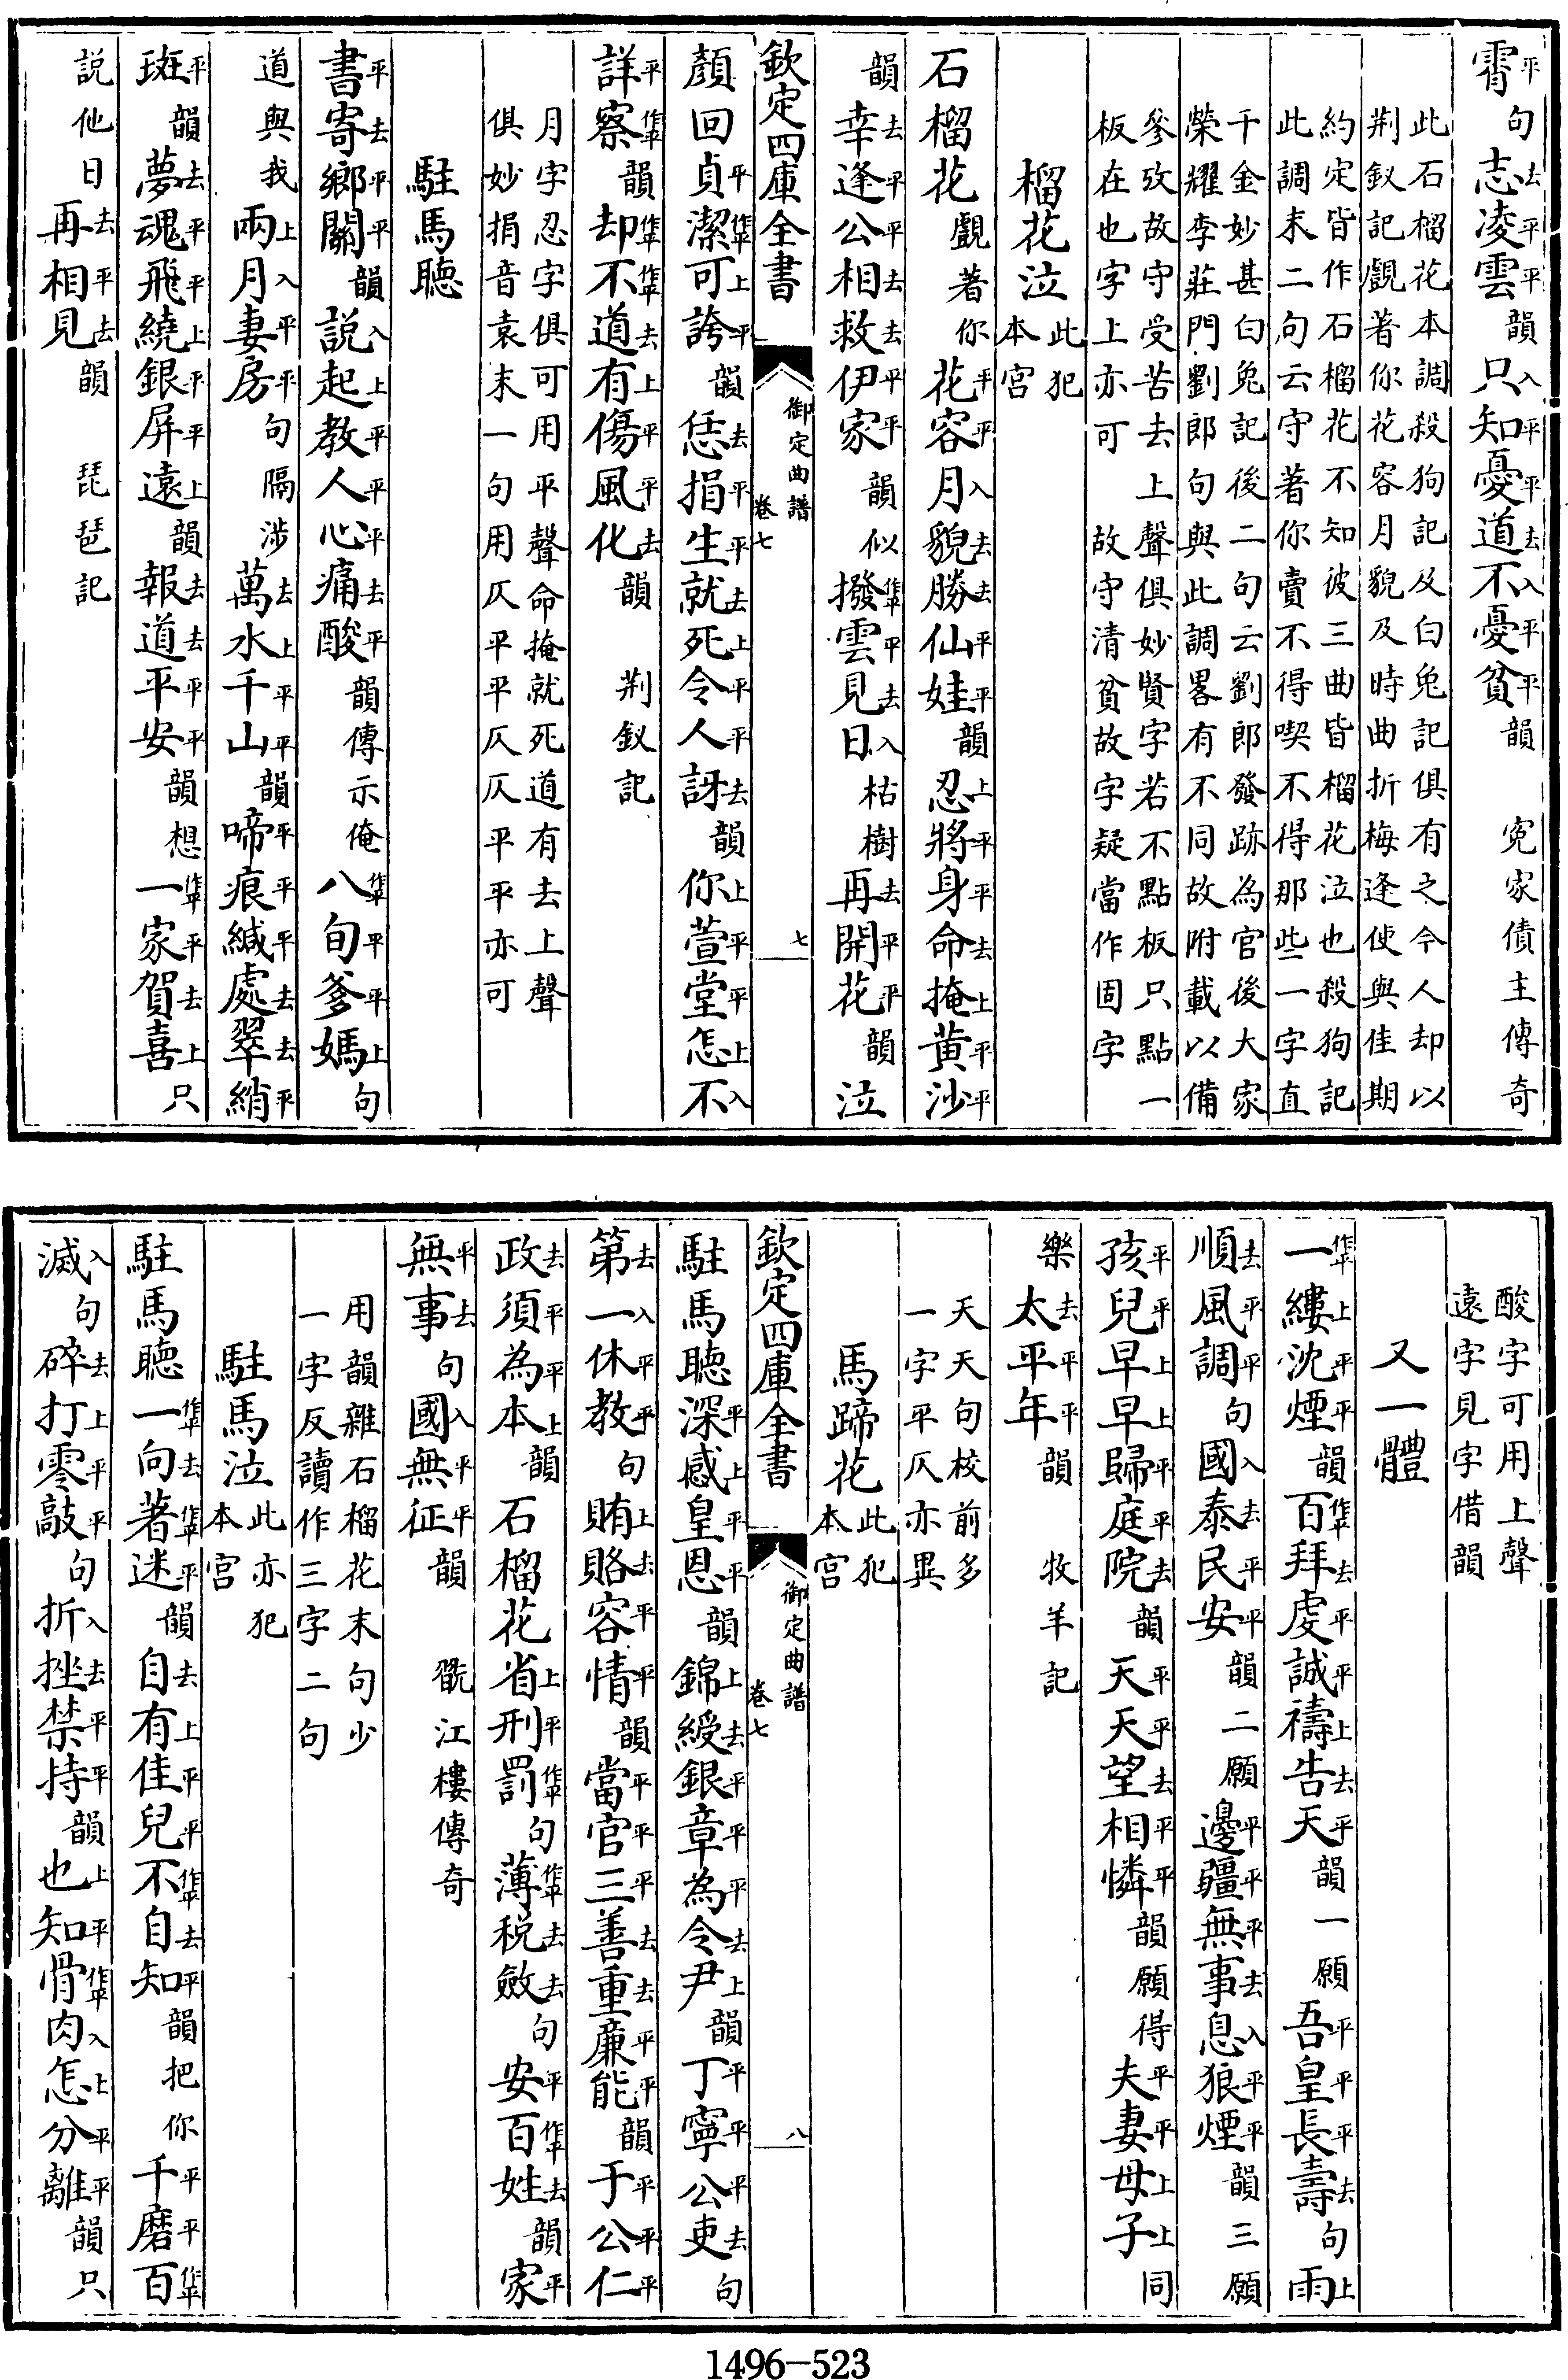 霄平句志去凌平雲平韻只入知平憂平道去不入憂平貧平韻 寃家債主傳奇
此石榴花本調殺狗記及白兎記俱有之今人却以
荆釵記觑著你花容月貌及時曲折梅逢使與佳期
約定皆作石榴花不知彼三曲皆榴花泣也殺狗記
此調末二句云守著你賣不得喫不得那些一字直
千金妙甚白兎記後二句云劉郎發跡為官後大家
榮耀李莊門劉郎句與此調畧有不同故附載以備
參攷故守受苦去上聲俱妙賢字若不點板只點一
板在也字上亦可 故守清貧故字疑當作固字
榴花泣此犯本宫
石榴花觑著你花平容平月入貌去勝去仙平娃平韻忍上將平身平命去掩上黄平沙平
韻幸去逢平公平相去救去伊平家平韻似撥作平雲平見去日入枯樹再去開平花平韻泣
欽定四庫全書 御定曲譜 卷七 七
顔回貞平潔作平可上誇平韻恁去捐平生平就去死上令平人平訝去韻你上萱平堂平怎上不入
詳平察作平韻却作平不作平道去有上傷平風平化去韻 荆釵記
月字忍字俱可用平聲命掩就死道有去上聲
俱妙捐音袁末一句用仄平平仄仄平平亦可
駐馬聽
書平寄去鄉平關平韻說入起上教平人平心平痛去酸平韻傳示俺八作平旬平爹平媽上句
道與我兩上月入妻平房平句隔涉萬去水上千平山平韻啼平痕平緘平處去翠去綃平
斑平韻夢去魂平飛平繞上銀平屏平遠上韻報去道去平平安平韻想一作平家平賀去喜上只
説他日再去相平見去韻 琵琶記
酸字可用上聲
遠字見字借韻
又一體
一作平縷上沈平煙平韻百作平拜去虔平誠平禱上告去天平韻一願吾平皇平長平壽去句雨上
順去風平調平句國入泰去民平安平韻二願邊平疆平無平事去息入狼平煙平韻三願
孩平兒平早上早上歸平庭平院去韻天平天平望去相平憐平韻願得夫平妻平母上子上同
樂太去平平年平韻 牧羊記
天天句校前多
一字平仄亦異
馬蹄花此犯本宫
欽定四庫全書 御定曲譜 卷七 八
駐馬聽深平感上皇平恩平韻錦上綬去銀平章平為平令去尹上韻丁平寧平公平吏去句
第去一入休平教平句賄上賂去容平情平韻當平官平三平善去重去廉平能平韻于平公平仁平
政去須平為平本上韻石榴花省上刑平罰作平句薄作平税去斂去句安平百作平姓去韻家平
無平事去句國入無平征平韻 翫江樓傳奇
用韻雜石榴花末句少
一字反讀作三字二句
駐馬泣此亦犯本宫
駐馬聽一作平向去著作平迷平韻自去有上佳平兒平不作平自去知平韻把你千平磨平百作平
滅入句碎去打上零平敲平句折入挫去禁平持平韻也上知平骨作平肉入怎上分平離平韻只
1496-523